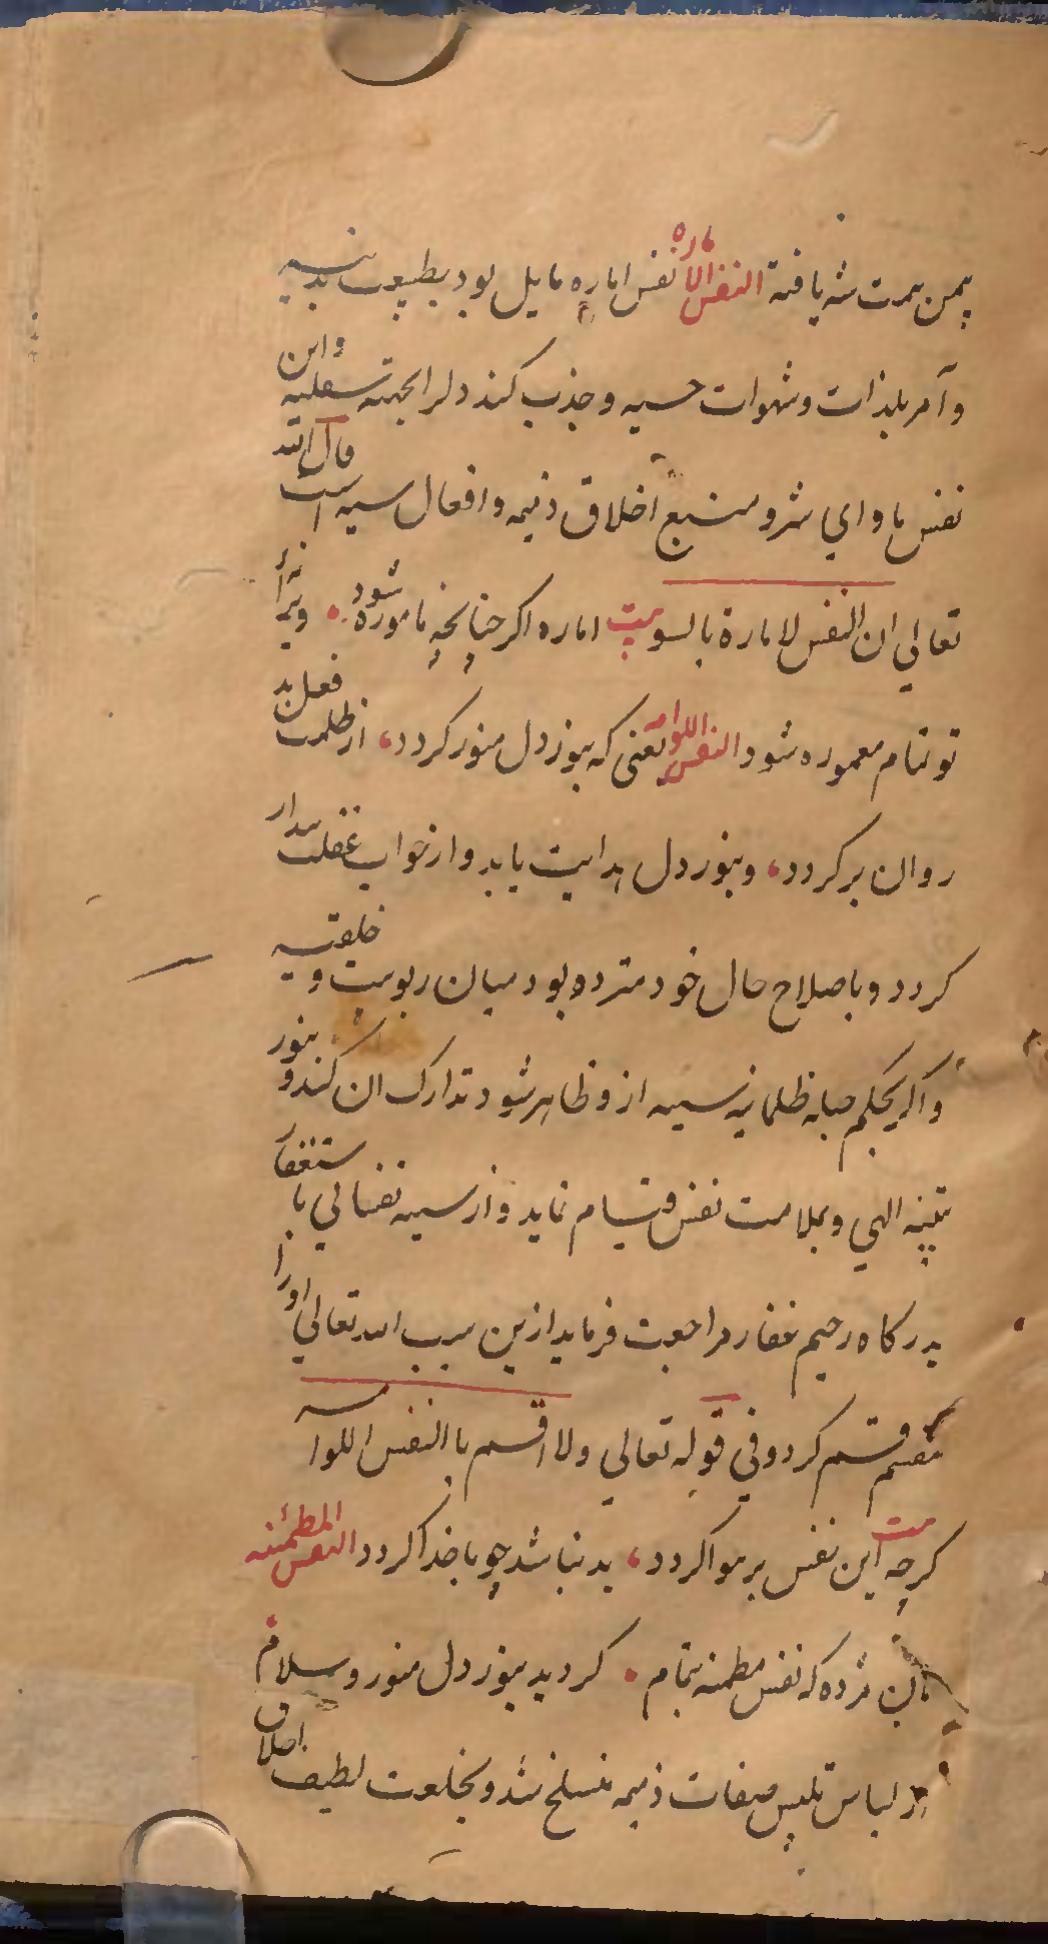 یمن سمت شه یافته النفس الاماره نفس اماره مایل بود بطبیعت بدنیه
و آمر بلذات و شهوات حسیه و جذب کند دلرا بجهته سفلیه و این
نفس ماوای شر و منبع اخلاق ذمیمه و افعال سیه است قال الله
تعالی ان النفس لامارة بالسو بیت اماره اکر چنانچه ماموره شود ویرانه
تو تمام معموره شود النفس اللوامه یعنی که بنور دل منور کردد، از ظلمت فعل بد
روان بر کردد، و بنور دل هدایت یابد و از خواب غفلت بیدار
کردد و باصلاح حال خود متردد بود میان ربوبیت و خلیقیه
و اکر بحکم جبله ظلمانیه سییه ازو ظاهر شود تدارک ان کند و بنور
تنبیه الهی و بملامت نفس قیام نماید و از سییه نفسالی با ستغفار
بدرکاه رحیم غفار مراجعت فرماید ازین سبب الله تعالی اورا
مقسم قسم کرد و فی قوله تعالی ولا اقسم باالنفس اللوامه
بیت کرچه این نفس بر هوا کردد، بد نباشد چو با خدا کردد النفس المطمئنه
ان مرده که نفس مطمنه بتمام . کردید بنور دل منور و سلام
از لباس تلبس صفات ذمیمه منسلخ شد و بخلعت لطیف اخلاق